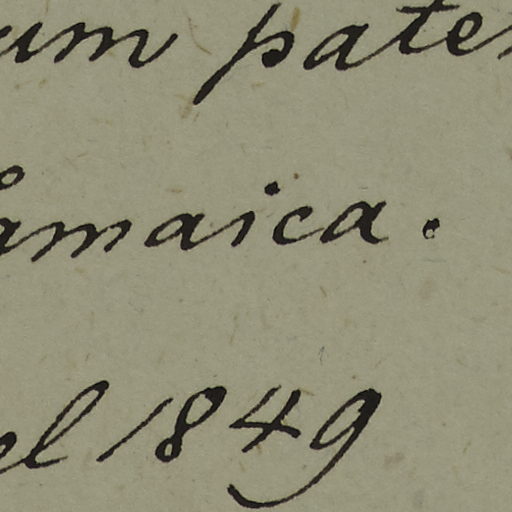 um pate
amaica.
el 1849